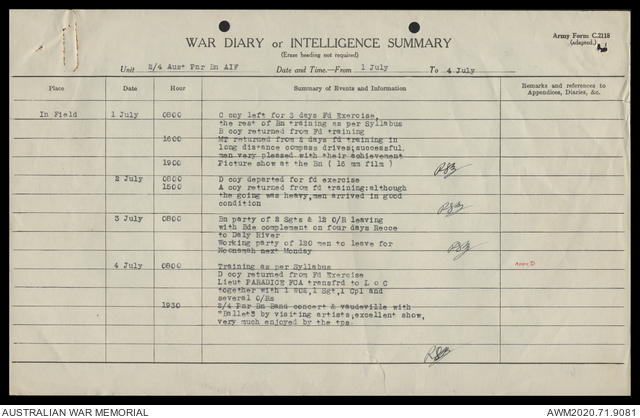 Army Form C.2118
(adapted.)
WAR DIARY or INTELLIGENCE SUMMARY
(Erase heading not required)
Unit 2/4 Aust Pnr Bn AIF Date and Time.—From 1 July To 4 July
Place Date Hour Summary of Events and Information Remarks and references to
Appendices, Diaries, &c.
In Field 1 July 0800 C coy left for 3 days Fd Exercise,
the rest of Bn training as per Syllabus
B coy returned from Fd training
1600 MT returned from 4 days fd training in
long distance compass drives;successful
men very pleased with their achievement
1900 Picture show at the Bn ( 16 mm film )
2 July 0800 D coy departed for fd exercise
1500 A coy returned from fd training:although
the going was heavy,men arrived in good
condition
3 July 0800 Bn party of 2 Sgts & 12 O/R leaving
with Bde complement on four days Recce
to Daly River
Working party of 120 men to leave for
Noonamah next Monday
4 July 0800 Training as per Syllabus Appx D
D coy returned from Fd Exercise
Lieut PARADICE FCA transfrd to L o C
together with 1 WO2,1 Sgt,1 Cpl and
several O/Rs
1930 2/4 Pnr Bn Band concert & vaudeville with
"Ballet3 by visiting artists,excellent show,
very much enjoyed by the tps.
AUSTRALIAN WAR MEMORIAL AWM2020.71.9081